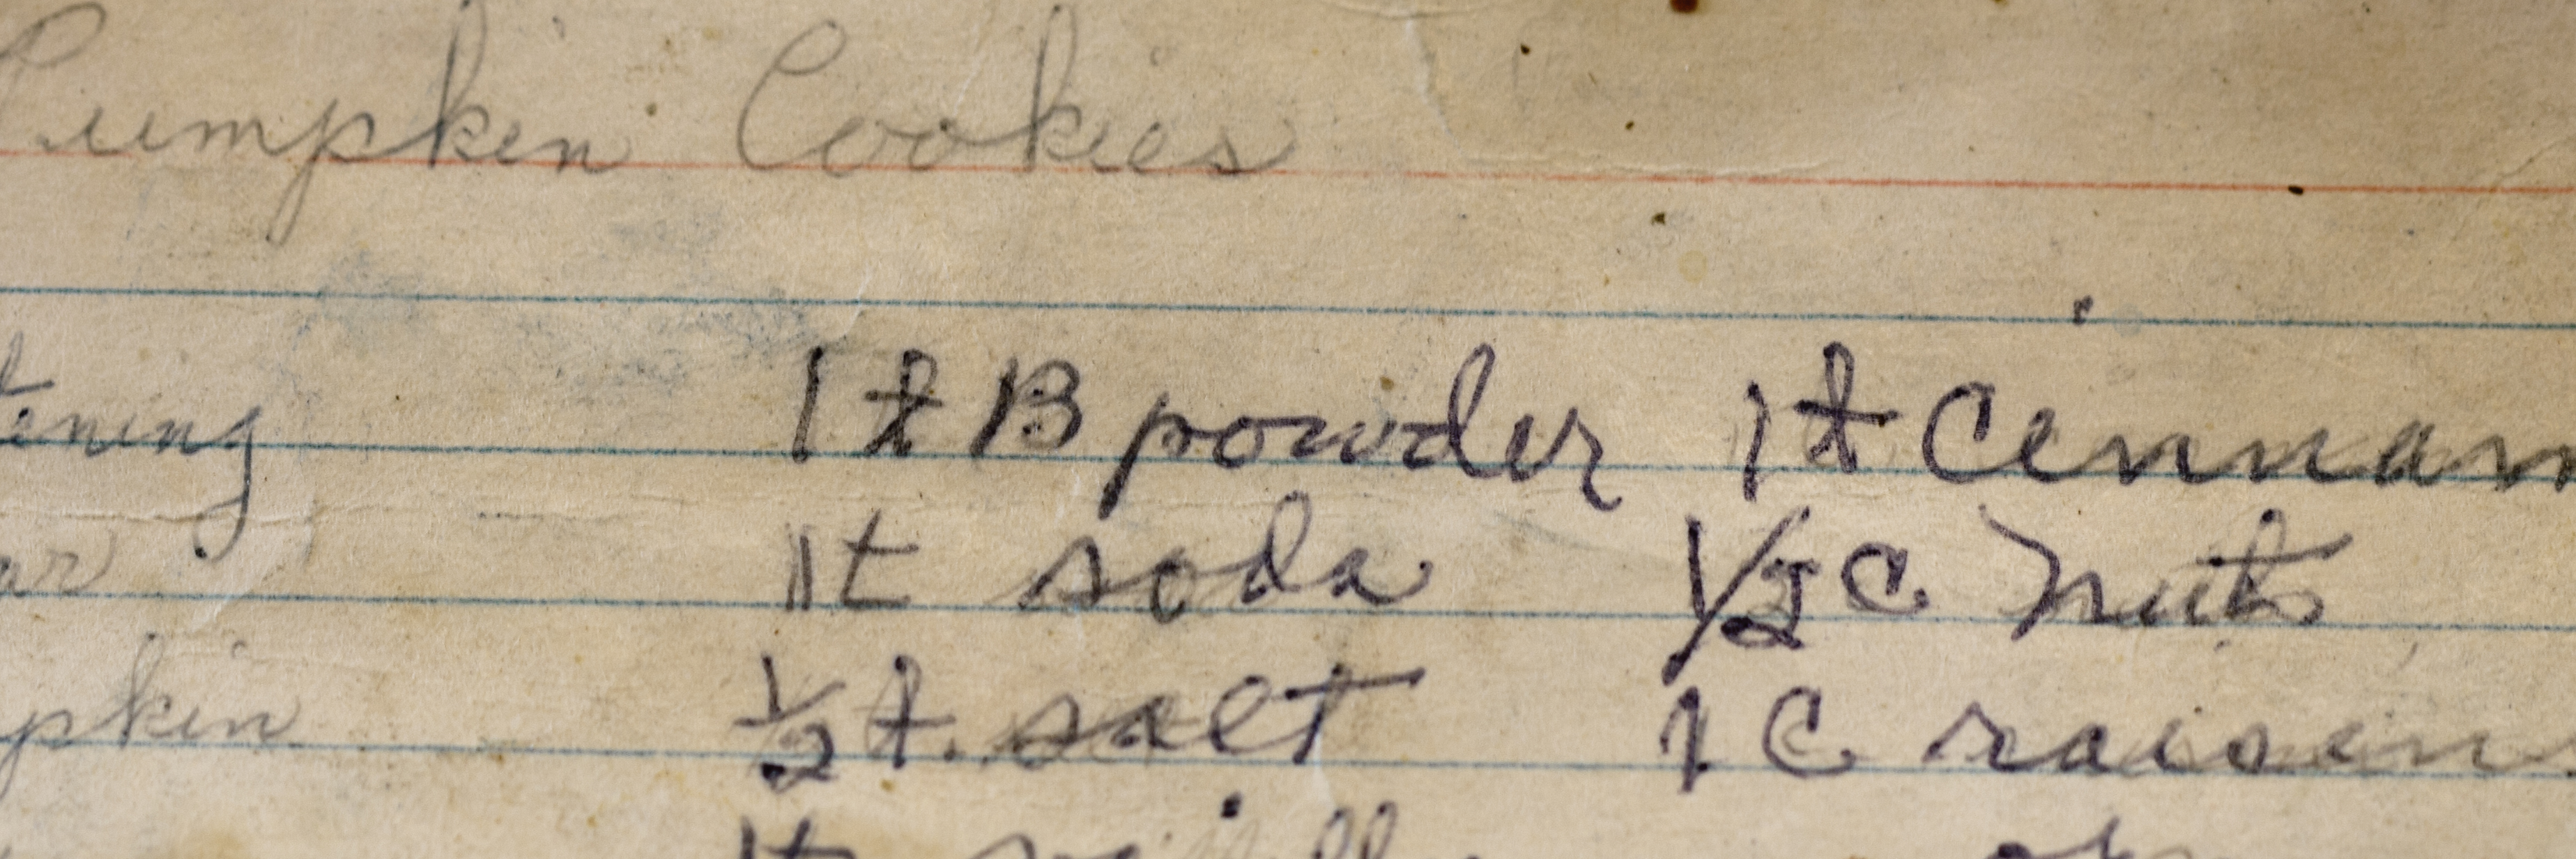 Pumpkin Cookies
tening 1 t B powder 1 t Cinnam
ar 1t soda 1/2 C nuts
pkin 1/2 t. salt 1 C raisins
1t